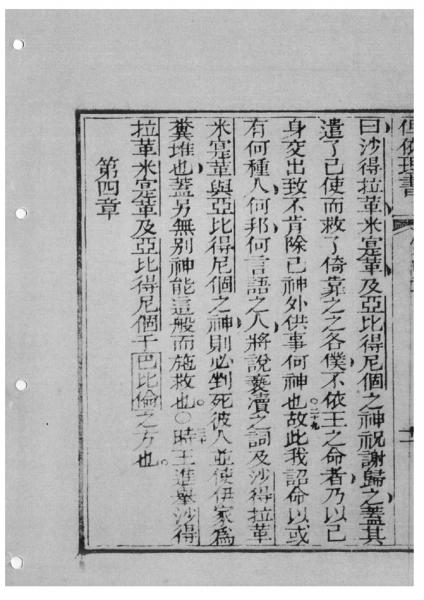 但依理書
曰沙得拉革米寔革及亞比得尼個之神祝謝歸之蓋其
遣了己使而救了倚靠之之各僕不依王之命者乃以己
身交出致不肯除己神外供事何神也故此我詔命以或
二十九
有何種人何邦何言語之人將說褻瀆之詞及沙得拉革
米寔革與亞比得尼個之神則必剉死彼人並使伊家為
糞堆也蓋另無別神能這般而施救也○時王進舉沙得
三十
拉革米寔革及亞比得尼個于巴比倫之方也
第四章